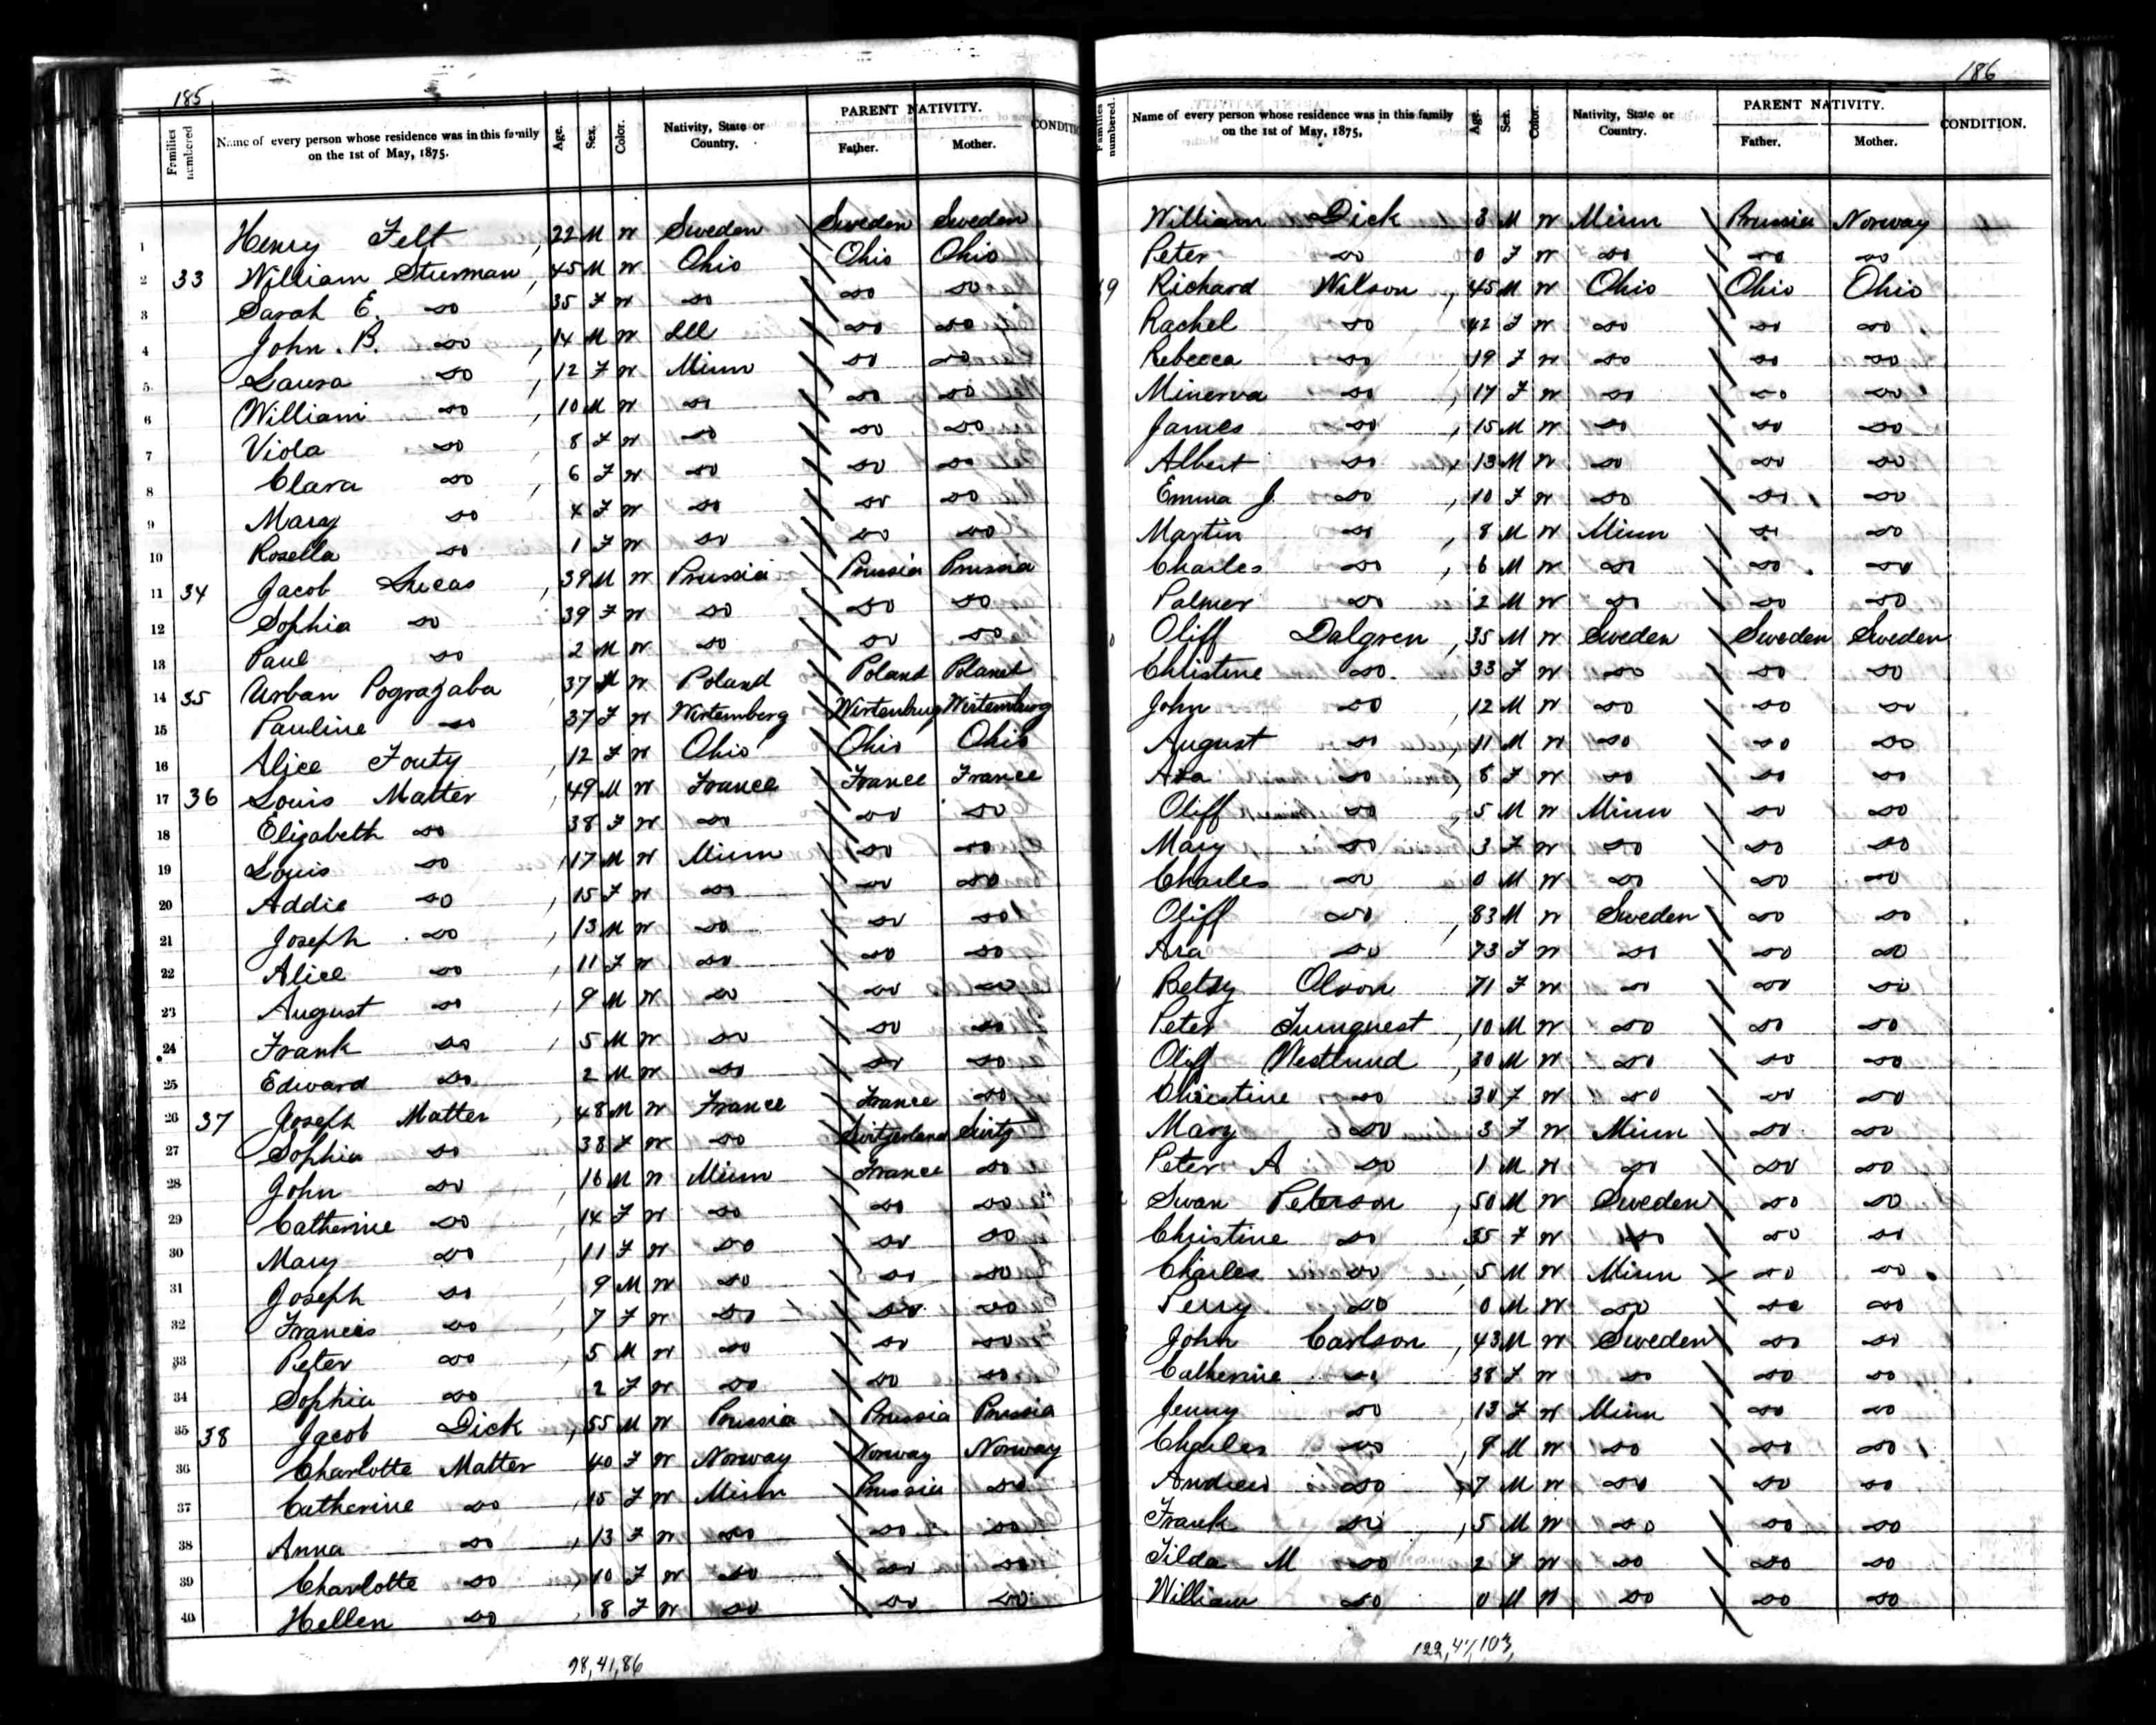 185
Families numbered
Name of every person whose residence was in this family on the 1st of May, 1875.
Age. Sex. Color.
Nativity, State or Country.
PARENT NATIVITY.
Father. Mother.
CONDITIO
1 Henry Felt 22 M W Sweden Sweden Sweden
2 33 William Sturman 45 M W Ohio Ohio Ohio
3 Sarah E. do 35 F W do do do
4 John B. do 14 M W Ill do do
5 Laura do 12 F W Minn do do
6 William do 10 M W do do do
7 Viola do 8 F W do do do
8 Clara do 6 F W do do do
9 Mary do 4 F W do do do
10 Rosella do 1 F W do do do
11 34 Jacob Lucas 39 M W Prussia Prussia Prussia
12 Sophia do 39 F W do do do
13 Paul do 2 M W do do do
14 35 Urban Pograzaba 37 M W Poland Poland Poland
15 Pauline do 37 F W Wirtemberg Wirtemburg Wirtemburg
16 Alice Fouty 12 F W Ohio Ohio Ohio
17 36 Louis Matter 49 M W France France France
18 Elizabeth do 38 F W do do do
19 Louis do 17 M W Minn do do
20 Addie do 15 F W do do do
21 Joseph do 13 M W do do do
22 Alice do 11 F W do do do
23 August do 9 M W do do do
24 Frank do 5 M W do do do
25 Edward do 2 M W do do do
26 37 Joseph Matter 48 M W France France do
27 Sophia do 38 F W do Switzerland Switz
28 John do 16 M W Minn France do
29 Catherine do 14 F W do do do
30 Mary do 11 F W do do do
31 Joseph do 9 M W do do do
32 Francis do 7 F W do do do
33 Peter do 5 M W do do do
34 Sophia do 2 F W do do do
35 38 Jacob Dick 55 M W Prussia Prussia Prussia
36 Charlotte Matter 40 F W Norway Norway Norway
37 Catherine do 15 F W Minn Prussia do
38 Anna do 13 F W do do do
39 Charlotte do 10 F W do do do
40 Hellen do 8 F W do do do
98, 41, 86
186
Families numbered.
Name of every person whose residence was in this family on the 1st of May, 1875,
Age. Sex. Color.
Nativity, State or Country.
PARENT NATIVITY.
Father. Mother.
CONDITION.
William Dick 3 M W Minn Prussia Norway
Peter do 0 F W do do do
9 Richard Wilson 45 M W Ohio Ohio Ohio
Rachel do 42 F W do do do
Rebecca do 19 F W do do do
Minerva do 17 F W do do do
James do 15 M W do do do
Albert do 13 M W do do do
Emma J. do 10 F W do do do
Martin do 8 M W Minn do do
Charles do 6 M W do do do
Palmer do 2 M W do do do
0 Oliff Dalgren 35 M W Sweden Sweden Sweden
Christine do 33 F W do do do
John do 12 M W do do do
August do 11 M W do do do
Ara do 8 F W do do do
Oliff do 5 M W Minn do do
Mary do 3 F W do do do
Charles do 0 M W do do do
Oliff do 83 M W Sweden do do
Ara do 73 F W do do do
Betsy Olson 71 F W do do do
Peter Turnquest 10 M W do do do
Oliff Westlund 30 M W do do do
Christine do 30 F W do do do
Mary do 3 F W Minn do do
Peter A do 1 M W do do do
Swan Peterson 50 M W Sweden do do
Christine do 35 F W do do do
Charles do 5 M W Minn do do
Perry do 0 M W do do do
John Carlson 43 M W Sweden do do
Catherine do 38 F W do do do
Jenny do 13 F W Minn do do
Charles do 9 M W do do do
Andrew do 7 M W do do do
Frank do 5 M W do do do
Tilda M do 2 F W do do do
William do 0 M W do do do